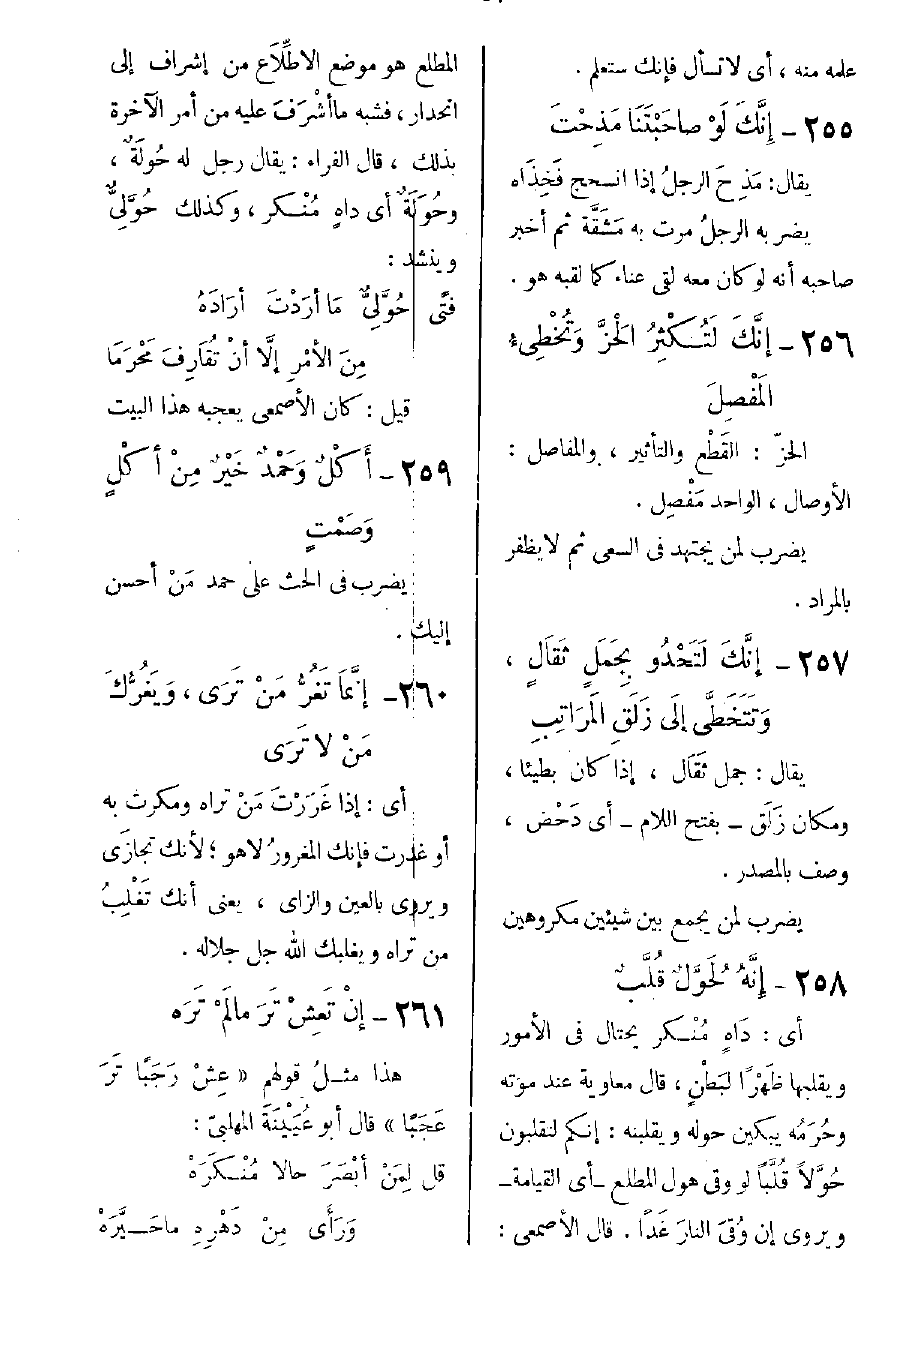 علمه منه ، أى لا تسأل فإنك ستعلم .
٢٥٥ ـ إِنَّكَ لَوْ صاحَبْتَنَا مَذِحْتَ
يقال : مَذِحَ الرجلُ إذا انسحج فَخِذَاه
يضرب به الرجلُ مرت به مَشَقَّة ثم أخبر
صاحبه أنه لو كان معه لقى عناء كما لقيه هو .
٢٥٦ ـ إِنَّكَ لَتُـكْثِرُ الْحَزَّ وَتُخْطِىء
الْمَفْصِلَ
الحزّ : القَطْع والتأثير ، والمفاصل :
الأوصال ، الواحد مَفْصِل .
يضرب لمن يجتهد فى السعى ثم لا يظفر
بالمراد .
٢٥٧ ـ إِنَّكَ لَتَحْدُو بِجَمَلٍ ثَقَالٍ ،
وَتَتَخَطَّى إِلَى زَلَقِ الْمَرَاتِبِ
يقال : جمل ثَقَال ، إذا كان بطيئا ،
ومكان زَلَق ـ بفتح اللام ـ أى دَحْض ،
وصف بالمصدر .
يضرب لمن يجمع بين شيئين مكروهين
٢٥٨ ـ إِنَّهُ لَحُوَّلٌ قُلَّبٌ
أى : دَاهٍ مُنْـكر يحتال فى الأمور
ويقلبها ظَهْرًا لبَطْنٍ ، قال معاوية عند موته
وحُرَمُه يبكين حوله ويقلبنه : إنكم لتقلبون
حُوَّلاً قُلَّباً لو وقى هول المطلع ـ أى القيامة ـ
ويروى إن وُقِىَ النارَ غَدًا . قال الأصمعى :
المطلع هو موضع الاطِّلَاع من إشراف إلى
انحدار ، فشبه ما أشْرَفَ عليه من أمر الآخرة
بذلك ، قال الفراء : يقال رجل له حُولَةٌ ،
وحُوَلَةٌ أى داهٍ مُنْـكر ، وكذلك حُوَّلِىٌّ
وينشد :
فتًى حُوَّلِىٌّ مَا أرَدْتَ أرَادَهُ
مِنَ الأمْرِ إلَّا أنْ تُقَارِفَ مَحْرَمَا
قيل : كان الأصمعى يعجبه هذا البيت
٢٥٩ ـ أَكْلٌ وَحَمْدٌ خَيْرٌ مِنْ أكْلٍ
وَصَمْتٍ
يضرب فى الحث على حمد مَنْ أحسن
إليك .
٢٦٠ ـ إنَّمَا تَغُرُّ مَنْ تَرَى ، وَيَغُرُّكَ
مَنْ لا تَرَى
أى : إذا غَرَرْتَ مَنْ تراه ومكرت به
أو غدرت فإنك المغرورُ لا هو ؛ لأنك تجازَى
ويروى بالعين والزاى ، يعنى أنك تَغْلِبُ
من تراه ويغلبك الله جل جلاله .
٢٦١ ـ إنْ تَعِشْ تَرَ مالَمْ تَرَه
هذا مثـلُ قولهم « عِشْ رَجَبًا تَرَ
عَجَبًا » قال أبو عُيَيْنَةَ المهلبىّ :
قل لِمَنْ أبْصَرَ حالا مُنْـكَرَهْ
وَرَأَى مِنْ دَهْرِهِ ماحَـيَّرَهْ